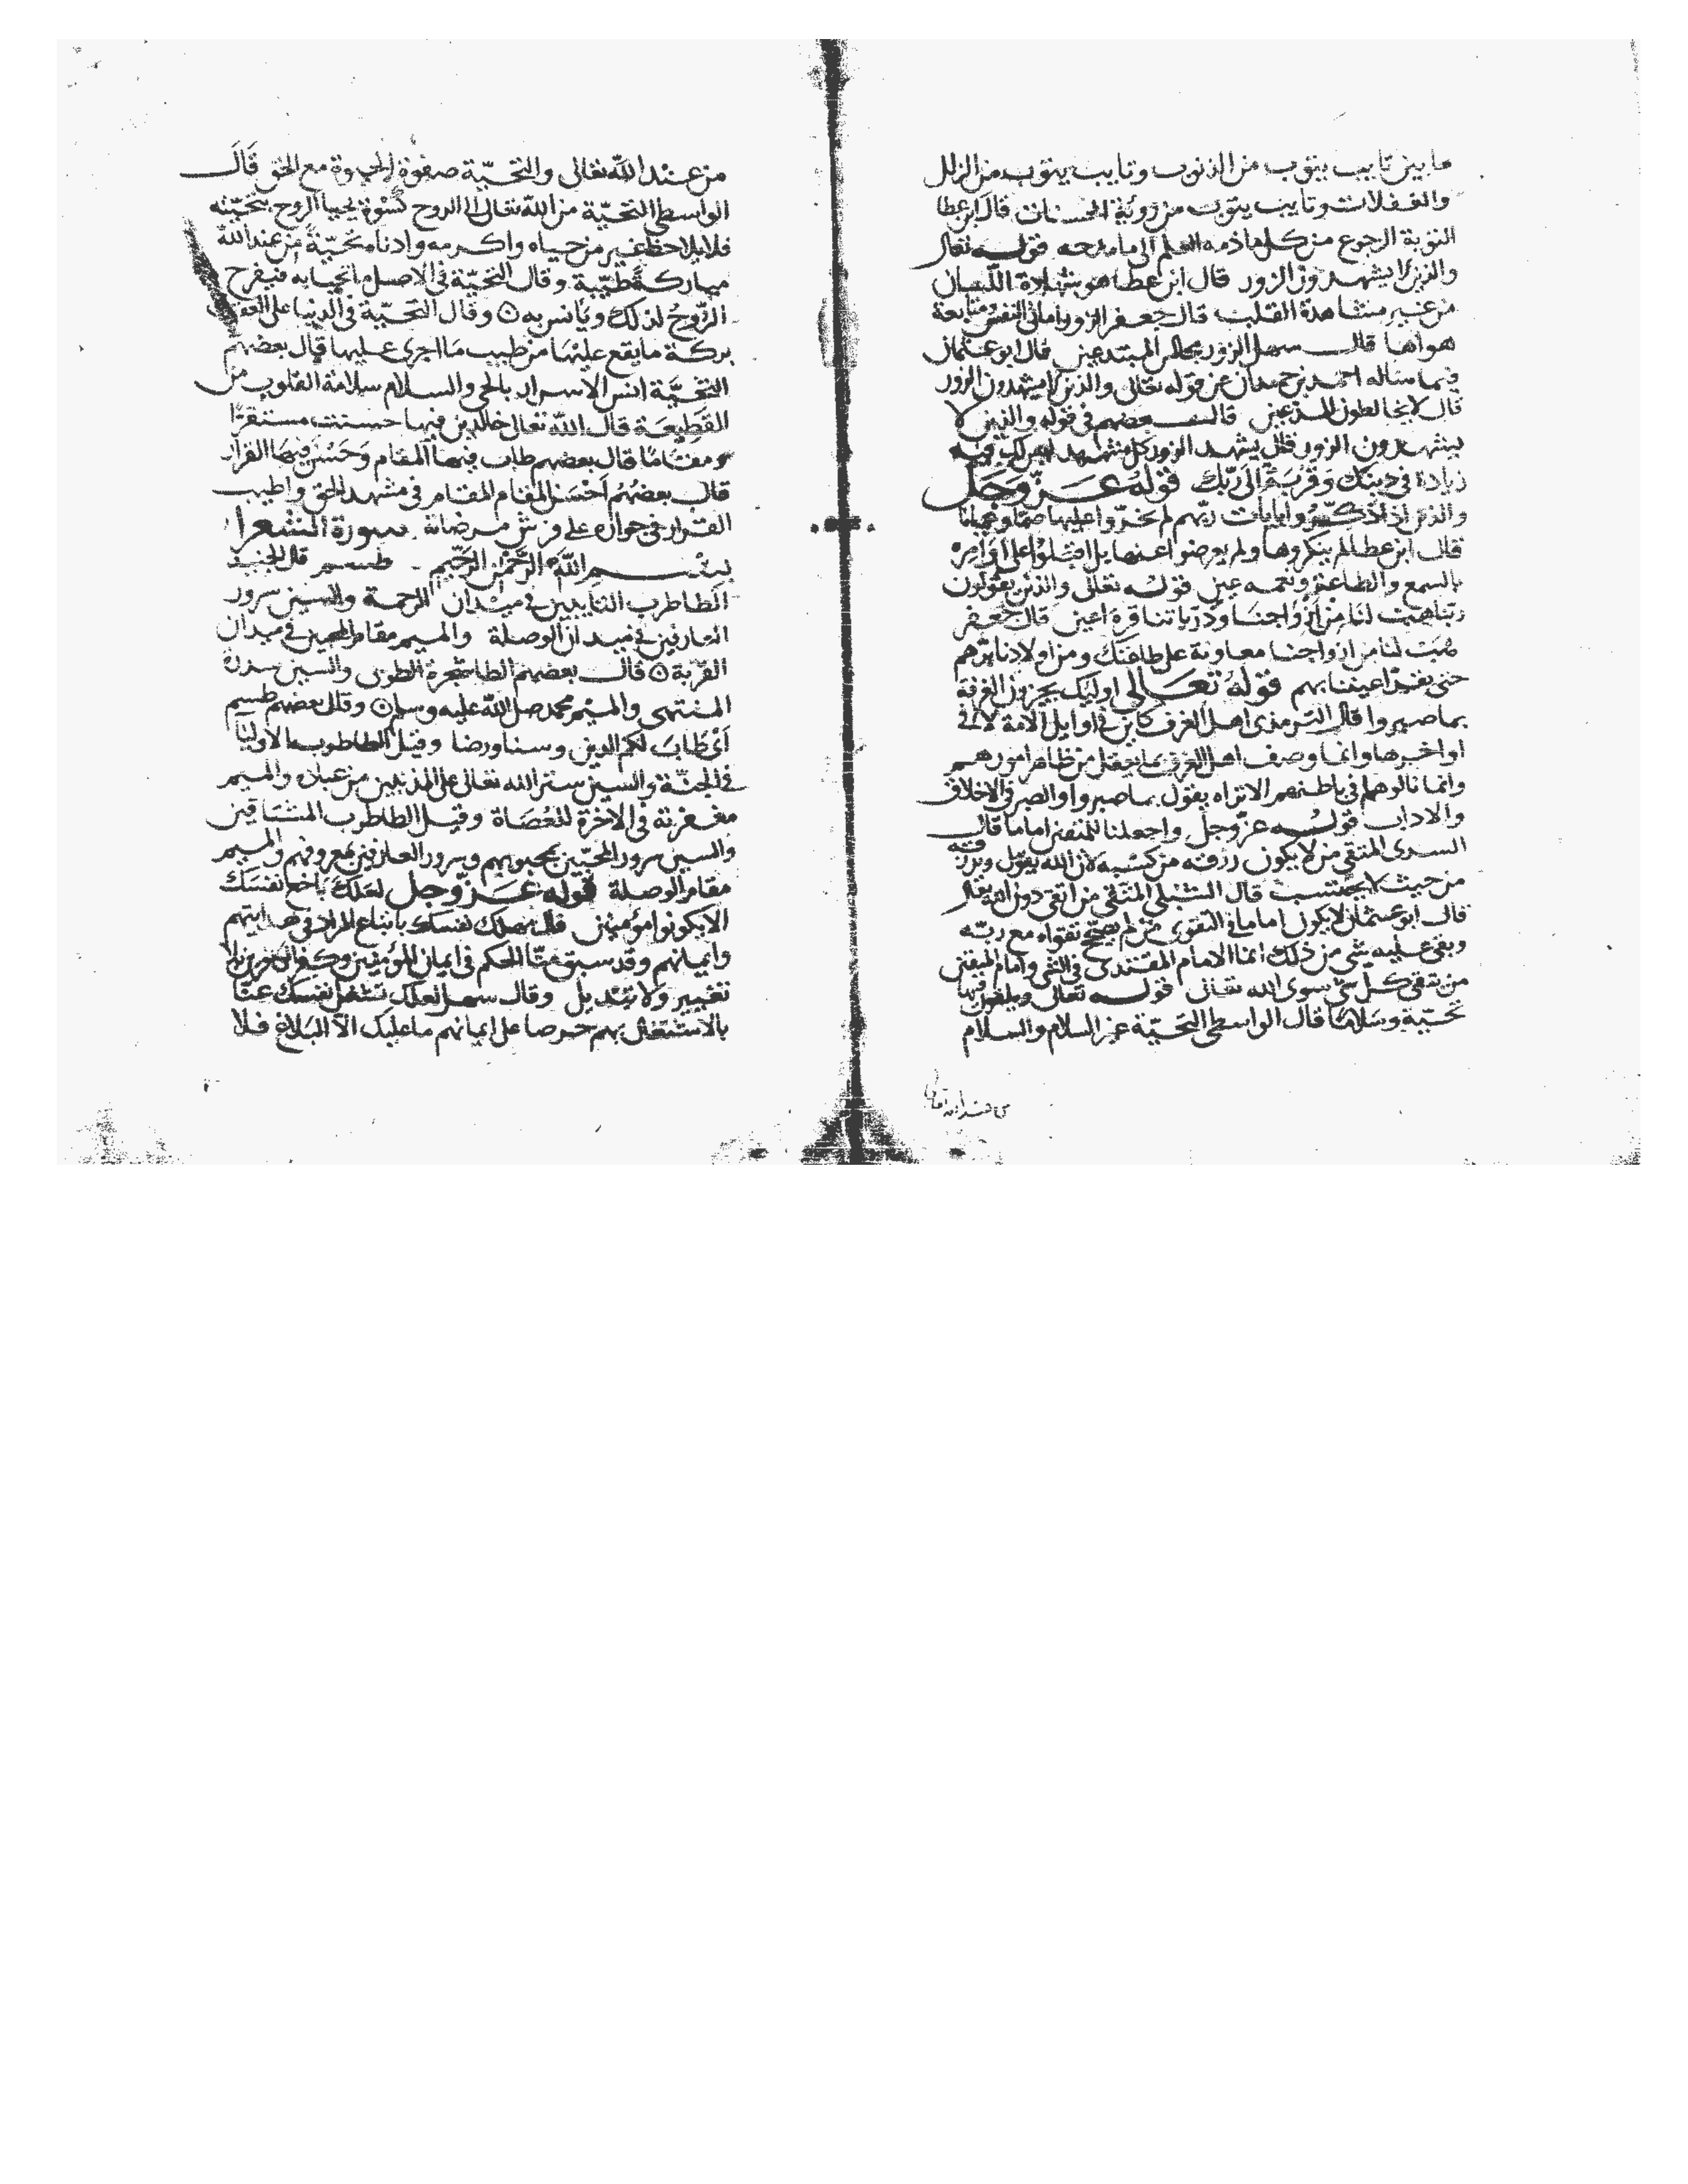 ما بين تايب يتوب من الذنوب وتايب يتوب من الزلل
والغفلات وتايب يتوب من روية الحسنات قال ابن عطا
التوبة الرجوع من كل ما ذمه العلم الى ما مدحه قوله تعالى
والذين لا يشهدون الزور قال ابن عطا هو شهادة اللسان
من غير مشاهدة القلب قال جعفر الزور امانى النفس ومتابعة
هواها قال سهل الزور مجالس المبتدعين قال ابو عثمان
فيما ساله احمد بن حمدان عن قوله تعالى والذين لا يشهدون الزور
قال لا يخالطون المدعين قال بعضهم في قوله والذين لا
يشهدون الزور قال يشهد الزور كل مشهد ليس لك فيه
زيادة في دينك وقربة الى ربك قوله عز وجل
والذين اذا ذكروا بايات ربهم لم يخروا عليها صما وعميانا
قال ابن عطا لم ينكروها ولم يعرضوا عنها بل اقبلوا على اوامره
بالسمع والطاعة ونعمه عين قوله تعالى والذين يقولون
ربنا هب لنا من ازواجنا وذرياتنا قرة اعين قال جعفر
هب لنا من ازواجنا معاونة على طاعتك ومن اولادنا برهم
حتى تقر اعيننا بهم قوله تعالى اوليك يجزون الغرفة
بما صبروا قال الترمذى اهل الغرف كاين في اوايل الامة لا في
اواخرها وانما وصف اهل الغرف بما يعقل من ظاهر امورهم
وانما نالوها بما في باطنهم الا تراه يقول بما صبروا والصبر في الاخلاق
والاداب قوله عز وجل واجعلنا للمتقين اماما قال
السرى المتقي من لا يكون رزقه من كسبه لان الله يقول ويرزقه
من حيث لا يحتسب قال الشبلي المتقي من اتقى دون الله تعالى
قال ابو عثمان لا يكون اماما في التقوى من لم يصحح تقواه مع ربه
وبقى عليه شي من ذلك انما الامام المقتدى في التقى وامام المتقين
من يتقي كل شي سوى الله تعالى قوله تعالى ويلقون فيها
تحية وسلاما قال الواسطي التحية عز السلام والسلام
من عند الله تعالى
من عند الله تعالى والتحية صفوة الحيوة مع الحق قال
الواسطي التحية من الله تعالى الى الروح كسوة يحيا الروح بتحيته
فلا يلاحظ غير من حياه واكرمه وادناه تحية من عند الله
مباركة طيبة وقال التحية في الاصل ما تحيا به فيفرح
الروح لذلك ويانس به وقال التحية في الدنيا على
بركة ما يقع عليها من طيب ما اجرى عليها قال بعضهم
التحية انس الاسرار بالحي والسلام سلامة القلوب من
القطيعة قال الله تعالى خالدين فيها حسنت مستقرا
ومقاما قال بعضهم طاب فيها المقام وحسن فيها القرار
قال بعضهم احسن المقام المقام في مشهد الحق واطيب
القرار في جواره على فرش مرضاته سورة الشعرا
بسم الله الرحمن الرحيم طسم قال الجنيد
الطا طرب التايبين في ميدان الرحمة والسين سرور
العارفين في ميدان الوصلة والميم مقام المحبين في ميدان
القربة قال بعضهم الطا شجرة الطوبى والسين سدرة
المنتهى والميم محمد صلى الله عليه وسلم وقال بعضهم طسم
اى طاب لكم الدين وسنا ورضا وقيل الطا طوب الاوليا
في الجنة والسين ستر الله تعالى على المذنبين من عباده والميم
مغفرته في الاخرة للعصاة وقيل الطا طرب المشتاقين
والسين سرور المحبين بمحبوبهم وسرور العارفين بمعروفهم والميم
مقام الوصلة قوله عز وجل لعلك باخع نفسك
الا يكونوا مؤمنين قال مهلك نفسك باتباع المراد في هدايتهم
وايمانهم وقد سبق منا الحكم في ايمان المؤمنين وكفر الكافرين بلا
تغيير ولا تبديل وقال سهل لعلك تشغل نفسك عنا
بالاشتغال بهم حرصا على ايمانهم ما عليك الا البلاغ فلا